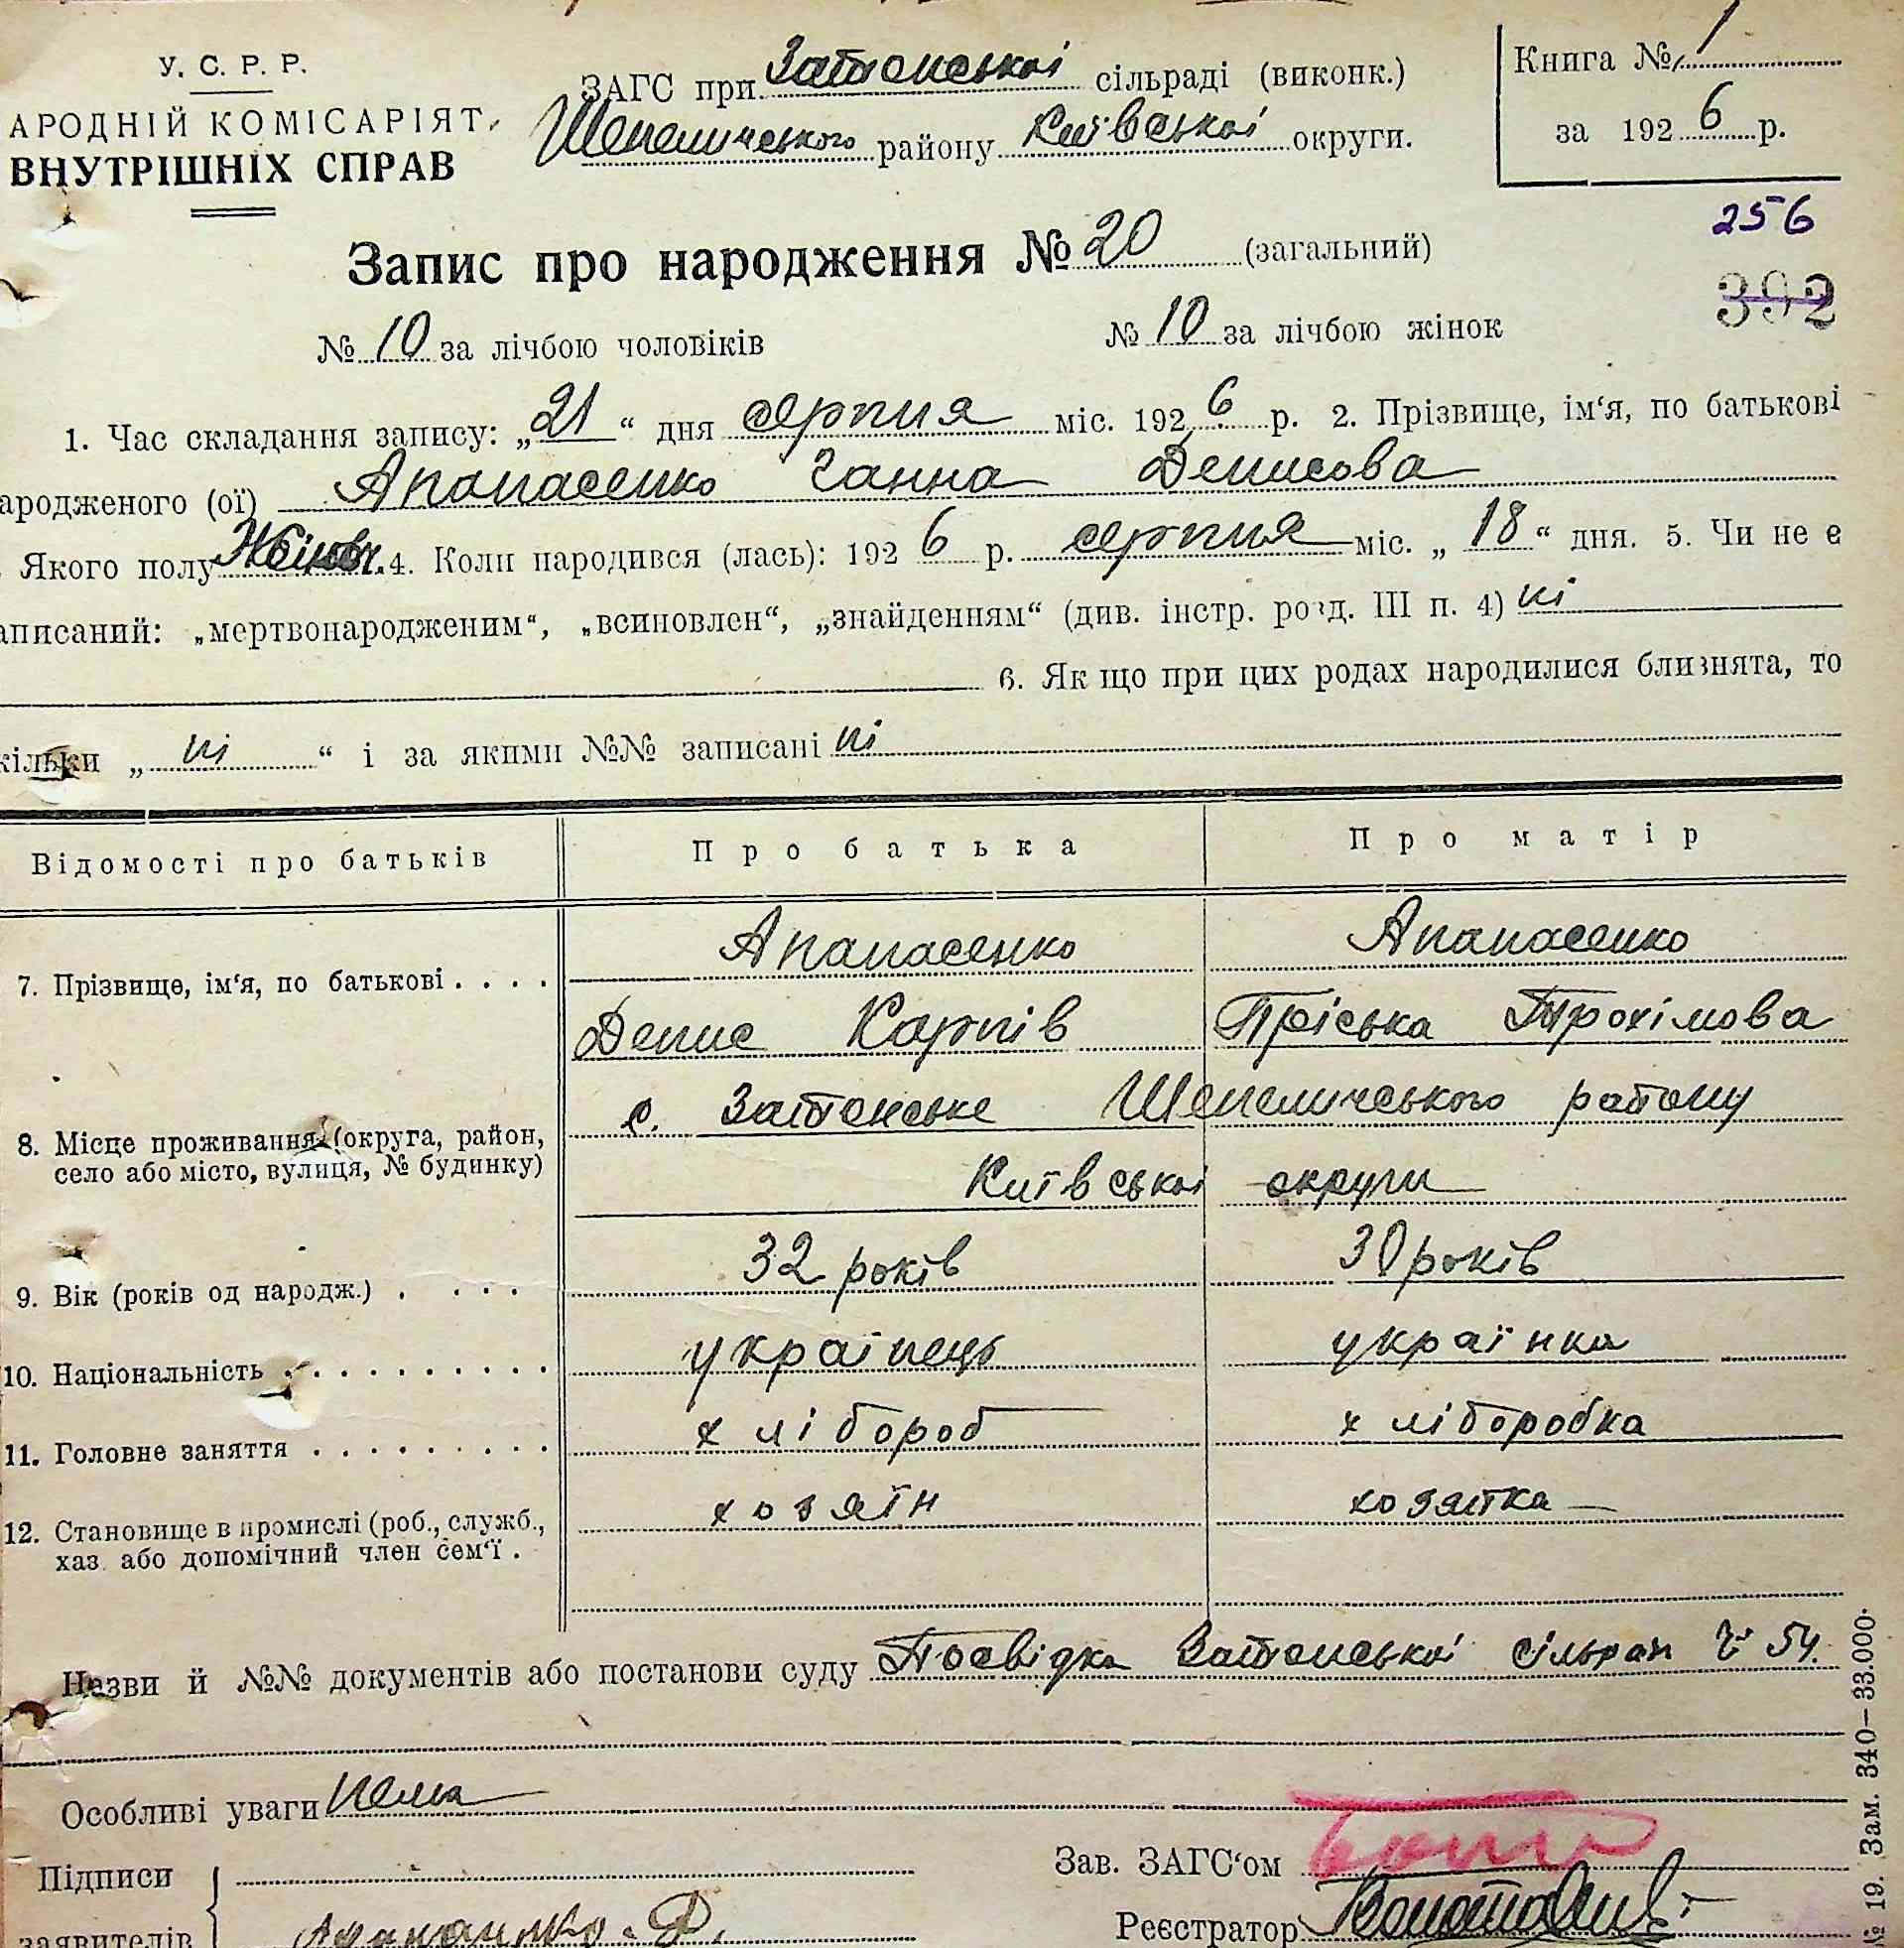 У. С. Р. Р.
АРОДНІЙ КОМІСАРІЯТ
ВНУТРІШНІХ СПРАВ
ЗАГС при Затонської сільраді (виконк.)
Шепелицького району Київської округи.
Книга № 1
за 1926 р.
256
Запис про народження № 20 (загальний)
392
№ 10 за лічбою чоловіків № 10 за лічбою жінок
1. Час складання запису: „21“ дня серпня міс. 1926 р. 2. Прізвище, ім‘я, по батькові
ародженого (ої) Апанасенко Ганна Денисова
Якого полу Жіноч. 4. Коли народився (лась): 1926 р. серпня міс. „18“ дня. 5. Чи не є
аписаний: „мертвонародженим“, „всиновлен“, „знайденням“ (див. інстр. розд. III п. 4) ні
6. Як що при цих родах народилися близнята, то
кільки „ні“ і за якими №№ записані ні
Відомості про батьків Про батька Про матір
Апанасенко Апанасенко
7. Прізвище, ім‘я, по батькові . . . .
Денис Карпів Пріська Трохімова
с. Затонське Шепелицького району
8. Місце проживання (округа, район,
село або місто, вулиця, № будинку)
Київської округи
9. Вік (років од народж.) . . . . 32 років 30 років
10. Національність . . . . . . . . . . українець українка
11. Головне заняття . . . . . . . . . хлібороб хліборобка
12. Становище в промислі (роб., служб., хозяїн хозяйка
хаз. або допомічний член сем‘ї .
Назви й №№ документів або постанови суду Посвідка Затонської сільради № 54.
Особливі уваги нема
Підписи
заявителів
Зав. ЗАГС‘ом
Реєстратор
№ 19. Зам. 340—33.000.